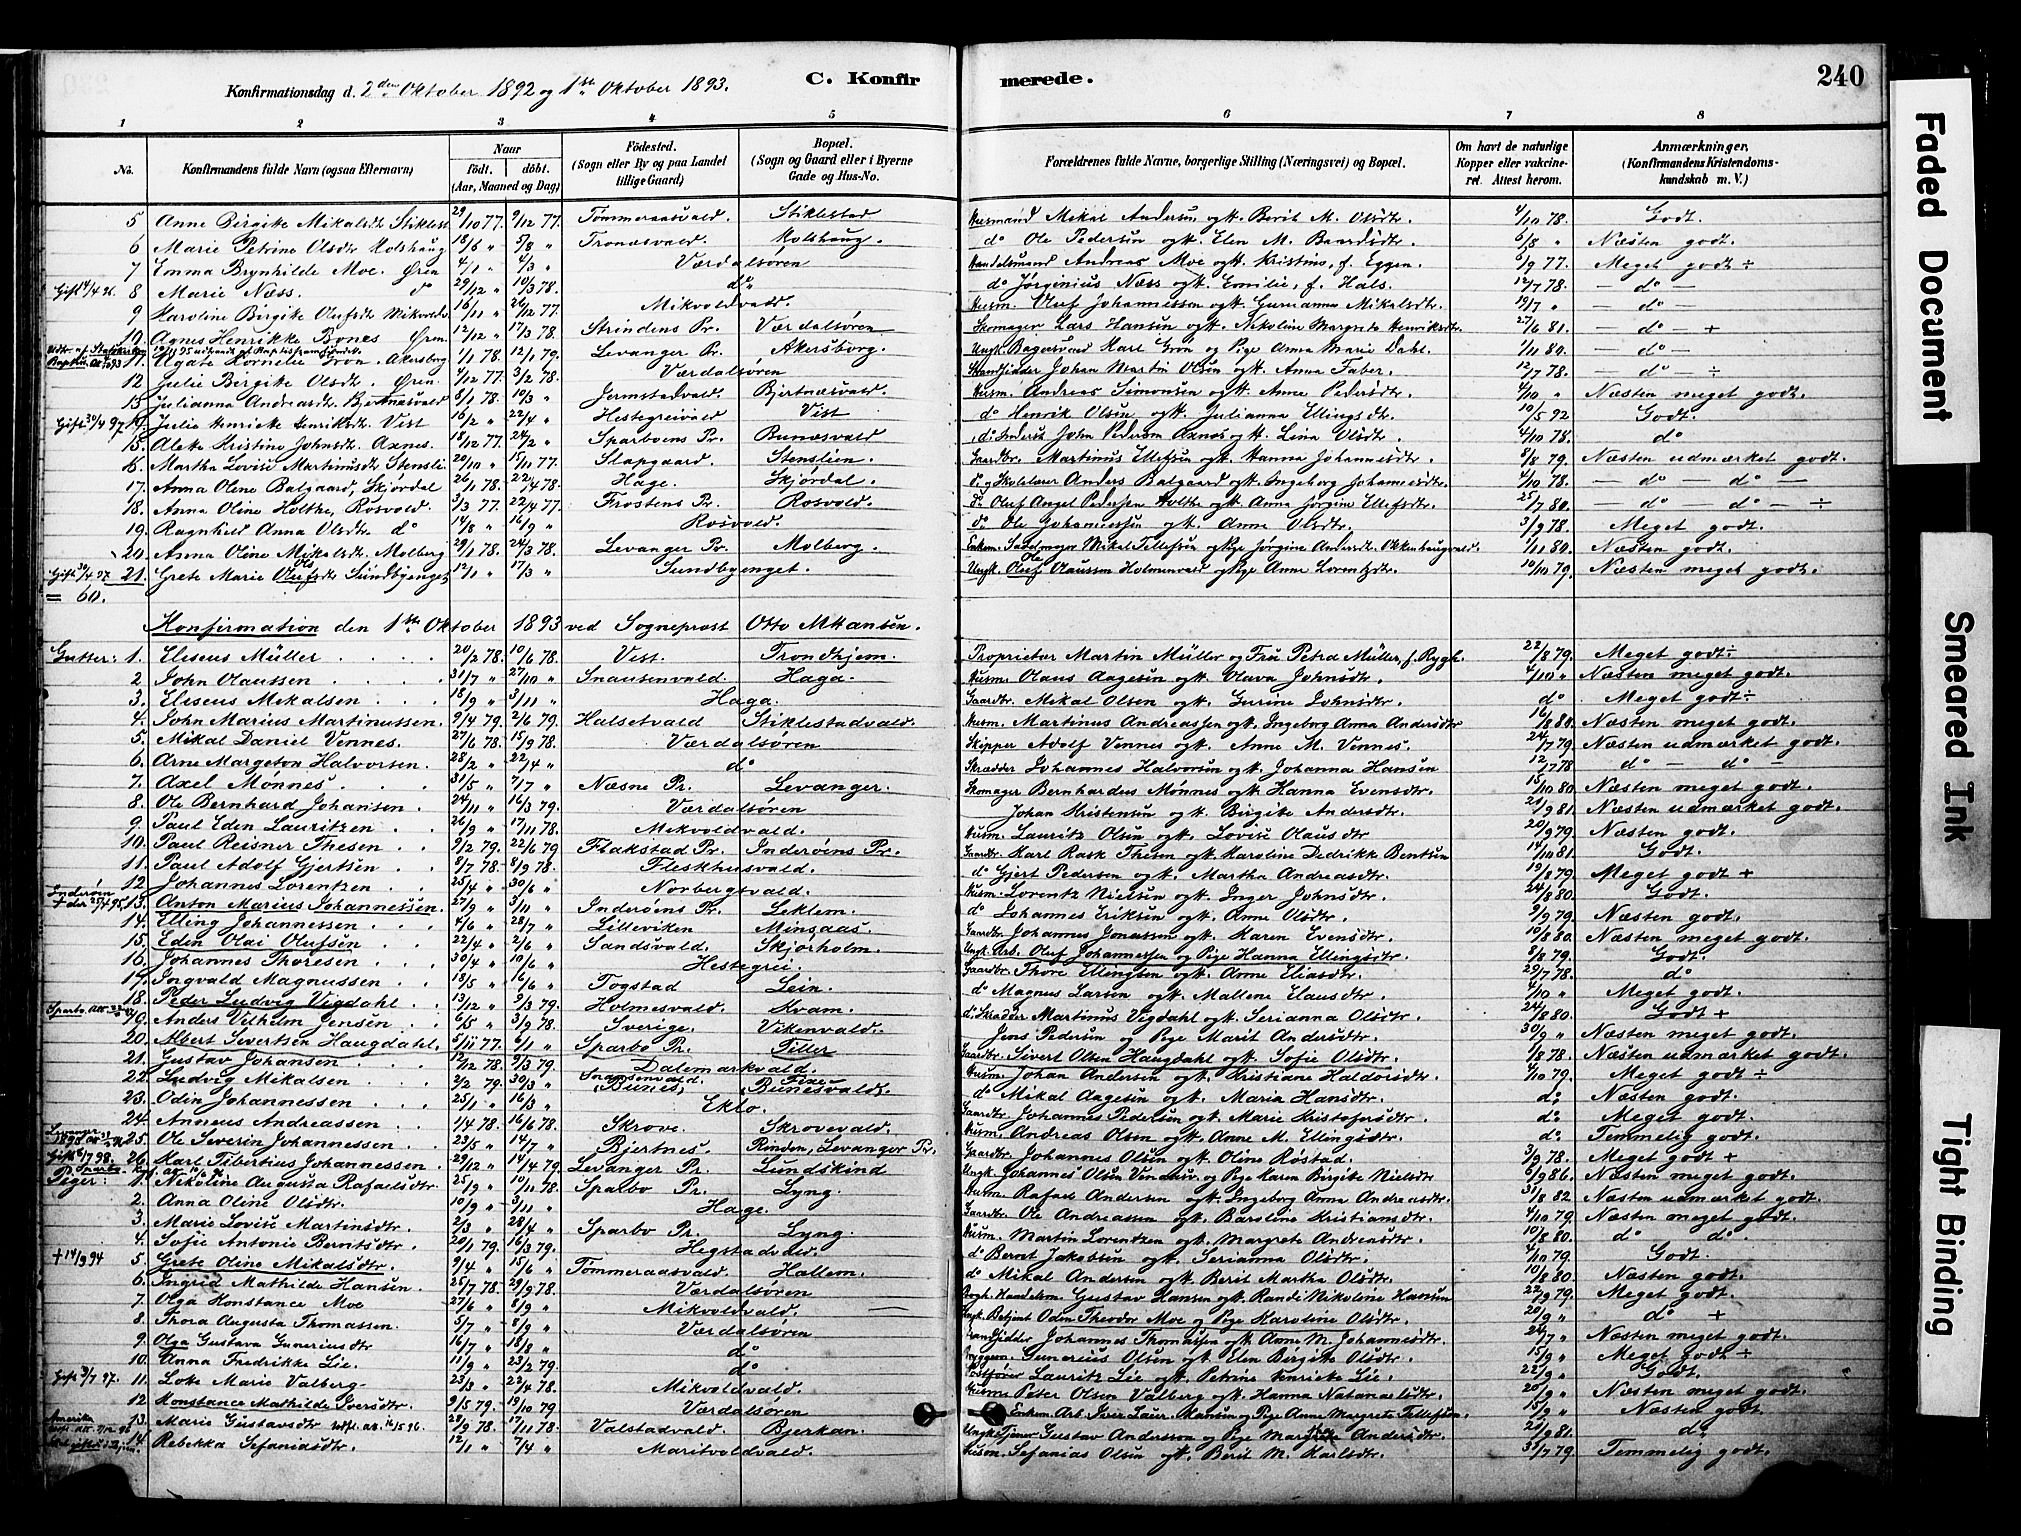 C. Konfirmerede. 240
Konfirmationsdag d. 2den Oktober 1892 og 1ste Oktober 1893.
1 2 3 4 5 6 7 8
No. Konfirmandens fulde Navn (ogsaa Efternavn) Naar Født. døbt. (Aar, Maaned og Dag) Fødested. (Sogn eller By og paa Landet tillige Gaard) Bopæl. (Sogn og Gaard eller i Byerne Gade og Hus-No. Forældrenes fulde Navne, borgerlige Stilling (Næringsvei) og Bopæl. Om havt de naturlige Kopper eller vakcineret. Attest herom. Anmærkninger, (Konfirmandens Kristendomskundskab m. V.)
5 Anne Birgitte Mikalsdt Stiklest 29/10 77. 9/12 77. Tømmeraasvald. Stiklestad Husmand Mikal Andersen og H. Berit M. Olsdtr. 4/10 78. Godt.
6 Marie Petrine Olsdtr Kolshaug 18/6 " 5/8 " Tronæsvald. Kolshaug. do Ole Pedersen og H. Elen M. Baardsdtr. 6/8 " Næsten godt.
7 Emma Brynhilde Moe. Øren 4/1 " 4/3 " Værdalsøren Handelsmand Andreas Moe og H. Kristine, f. Eggen. 6/9 77. Meget godt ÷
8 Marie Næss. do 29/12 " 10/3 78. do do Jørginius Næss og H. Emilie, f. Hals. 12/7 78. — do —
9 Karoline Birgite Olufsdt Mikvoldv. 16/11 " 26/12 77. Mikvoldvald. Husm. Oluf Johannessen og H. Gurianna Mikalsdt. 19/7 " — do
10. Agnes Henrikke Bynes Øren 12/12 " 17/3 78. Strindens Pr. Værdalsøren Skomager Lars Hansen og H. Nikoline Margrete Henriksdtr. 27/6 81. — do — +
11. Agate Kornelie Grøn Akersborg 1/1 78. 12/1 79. Levanger Pr. Akersborg. Ungk. Bagersvend Karl Grøn og Pige Anna Marie Dahl. 1/11 80. — do —
12 Julie Birgite Olsdt. Øren. 4/12 77. 3/2 78. Værdalsøren Strandsidder Johan Martin Olsen og H. Anna Faber. 12/7 78. — do — ÷
13 Julianna Andreasdt. Bjertnæsvald 8/1 78. 10/3 " Jermstadvald. Bjertnæsvald Husm. Andreas Simonsen og H. Anne Pedersdtr. 4/10 " Næsten meget godt.
Gift 30/4 97. 14. Julie Henriette Henriksdt. Vist 16/2 " 22/4 " Hestegreivald Vist do Henrik Olsen og H. Julianna Ellingsdtr. 10/5 92 Godt.
15. Alette Kristine Johnsdt. Axnes. 18/12 77. 24/2 " Sparboens Pr. Bunæsvald John Pedersen Axnes og H. Lina Olsdtr. 4/10 78. do
16. Martha Lovise Martinusdt. Stensli. 20/10 " 15/11 77. Slapgaard. Stenslien. Gaardbr. Martinus Ellefsen og H. Hanna Johannesdtr. 8/8 79. Næsten udmærket godt.
17. Anna Oline Balgaard, Skjørdal 26/1 78. 22/4 78. Hage. Skjørdal. do og Skolelærer Anders Balgaard og H. Ingeborg Johannesdtr. /10 78. — do — do —
18. Anna Oline Holthe, Rosvold. 3/3 77 22/4 77. Frostens Pr. Rosvold. do Oluf Angel Pedersen Holthe og H. Anna Jørgine Ellefsdtr. 25/7 80. — do do — ÷
19. Ragnhild Anna Olsdt. do 14/8 " 16/9 " Rosvold. do Ole Johannessen og H. Anne Olsdtr. 3/9 78. Meget godt.
20. Anna Oline Mikalsdt. Molberg 29/1 78. 24/3 78. Levanger Pr. Molberg. Enkem. Sadelmager Mikal Tellefsen og Pige Jørgine Andersdt. Okkenhaugvald. 1/11 80. Næsten godt.
Gift 30/4 97 21. Grete Marie Olufsdt Sundbyenget 12/1 " 17/3 " Sundbyenget. Ungk. Oluf Olaussen Holmenvald og Pige Anne Lorentsdtr. 10/10 79. Næsten meget godt.
= 60.
Konfirmation den 1ste Oktober 1893 ved Sogneprost Otto M. Hansen.
Gutter: 1. Eliseus Müller 20/2 78. 10/6 78. Vist. Trondhjem. Proprietær Martin Müller og Fru Petra Müller, f. Rygh. 22/8 79. Meget godt ÷
2. John Olaussen 31/7 " 27/10 " Snausenvald. Haga. Husm. Olaus Aagesen og H. Olava Johnsdtr. 4/10 " Næsten meget godt.
3. Eliseus Mikalsen. 18/9 " 3/11 " Haga. Gaardbr. Mikal Olsen og H. Gurine Johnsdtr. do Meget godt ÷
4. John Marius Martinussen. 9/4 79. 2/6 79. Halsetvald Stiklestadvald. Husm. Martinus Andreassen og H. Ingeborg Anna Andersdtr 16/8 80. Næsten meget godt.
5. Mikal Daniel Vennes. 27/6 78. 15/9 78. Værdalsøren Skipper Adolf Vennes og H. Anne M. Vennes. 24/7 79. Næsten udmærket godt.
6. Arne Margeton Halvorsen. 28/2 " 22/4 " do Skrædder Johannes Halvorsen og H. Johanna Hansen 12/7 78 do — do —
7. Axel Mønnes. 31/5 " 7/7 " Næsne Pr. Levanger. Skomager Bernhardus Mønnes og H. Hanna Evensdtr. 15/10 80 Næsten meget godt.
8. Ole Bernhard Johansen. 24/11 " 16/3 79. Værdalsøren Johan Kristensen og H. Birgite Andersdtr. 21/9 81. Næsten udmærket godt.
9. Paul Eden Lauritzen 26/9 " 17/11 78. Mikvoldvald. Husm. Lauritz Olsen og H. Lovise Olausdtr 20/9 79. Næsten godt.
10. Paul Reisner Thesen 9/2 79. 22/6 79 Flakstad Pr. Inderøens Pr. Gaardbr. Karl Rask Thesen og H. Karoline Dedrikke Bentsen 14/10 81. Godt.
11. Paul Adolf Gjertsen 8/7 78. 8/9 78. Fleskhusvald. do Gjert Pedersen og H. Martha Andreasdtr. 19/8 79. Meget godt +
12. Johannes Lorentzen 25/4 " 30/6 " Norbergsvald. Husm. Lorentz Nielsen og H. Inger Johnsdtr. 24/8 80. Godt.
13. Anton Marius Johannessen. 27/9 " 3/11 " Inderøens Pr. Leklem. do Johannes Eriksen og H. Anne Olsdtr. 9/9 79. Næsten godt.
14. Elling Johannessen 4/6 " 28/7 " Lilleviken Minsaas. Gaardbr. Johannes Jonassen og H. Karen Evensdtr. 10/8 80. Næsten meget godt.
15. Eden Olai Olufsen 22/4 " 2/6 " Sandsvald. Skjørholm. Ungk. Arb. Oluf Johannessen og Pige Hanna Ellingsdtr. 8/8 79. Godt.
16. Johannes Thoresen 30/4 " 10/6 " Hestegrei. Gaardbr. Thore Ellingsen og H. Anne Eliasdtr. 29/7 78. do
17. Ingvald Magnussen 13/5 " 16/6 " Fogstad Lein. do Magnus Larsen og H. Mallene Clausdtr. 4/10 " Meget godt.
18. Peder Ludvig Vigdahl 13/12 " 9/3 79. Holmesvald. Kvam. do Skrædder Martinus Vigdahl og H. Serianna Olsdtr. 24/8 80. Godt +
19. Anders Vilhelm Jensen 6/5 " 3/9 78. Sverige. Vikenvald. Jens Pedersen og Pige Marit Andersdtr. 30/9 " Næsten meget godt.
20. Albert Sivertsen Haugdahl. 5/11 77. 6/1 " Sparbo Pr. Tiller Gaardbr. Sivert Olsen Haugdahl og H. Sofie Olsdtr. /8 78. Næsten udmærket godt.
21. Gustav Johansen 12/12 78 9/3 79. Dalemarkvald. Husm. Johan Andersen og H. Kristiane Haldorsdtr. 4/10 79. Meget godt ÷
22. Ludvig Mikalsen 2/2 79. 30/3 " Snausenvald. Bunes, Bunesvald. do Mikal Aagesen og H. Maria Hansdtr. do Næsten godt.
23. Odin Johannessen 25/1 " 16/3 " Eklo. Gaardbr. Johannes Pedersen og H. Marie Kristofersdtr. do Meget godt.
24. Anneus Andreassen 1/4 78 16/6 78. Skrove. Skrovevald. Husm. Andreas Olsen og H. Anne M. Ellingsdtr. do Temmelig godt.
25. Ole Severin Johannessen 23/5 " 14/7 " Bjertnes. Rinden, Levanger Pr. Gaardbr. Johannes Olsen og H. Oline Røstad. 3/9 78. Meget godt +
Gift 6/7 98. 26. Karl Tibertius Johannessen 29/12 " 14/4 79. Levanger Pr. Lundskind Ungk. Johannes Olsen og Pige Karen Birgite Nielsdtr 6/9 86. Næsten meget godt.
Piger: 1. Nikoline Augusta Rafaelsdtr. 25/9 " 10/11 78. Sparbo Pr. Lyng. Husm. Rafael Andersen og H. Ingeborg Anna Andreasdtr. 31/8 82 Næsten udmærket godt.
2. Anna Oline Olsdtr. 10/9 " 3/11 " Hage. Gaardbr. Ole Andreassen og H. Baroline Kristiansdtr. 4/10 79. Næsten meget godt.
3. Marie Lovise Martinsdtr. 2/3 " 28/4 " Sparbo Pr. Lyng. Husm. Martin Lorentzen og H. Margrete Andreasdtr. 10/8 80. do do.
4. Sofie Antonie Berntsdtr. 20/1 79. 16/3 79. Hegstadvald. do Bernt Jakobsen og H. Serianna Olsdtr. 4/10 79. Godt.
+ 14/9 94 5. Grete Oline Mikalsdtr. 9/4 " 15/6 " Tømmeraasvald. Hallem. do Mikal Andersen og H. Berit Martha Olsdtr. 10/8 80. Næsten godt.
6. Ingrid Mathilde Hansen. 25/7 78. 29/9 78. Værdalsøren Gustav Hansen og H. Randi Nikoline Hansen 22/9 79. Meget godt.
7. Olga Konstance Moe 27/6 " 8/9 " Mikvoldvald. — Betjent Oden Theodor Moe og Pige Karoline Olsdtr. 20/9 " do +
8. Thora Augusta Thomassen. 5/7 " 8/9 " Værdalsøren Strandsidder Johannes Thomassen og H. Anne M. Johannesdtr. 24/7 " Næsten meget godt.
9. Olga Gustava Gunneriusdtr 16/7 " 18/8 " do Gunerius Olsen og H. Elen Birgite Olsdtr. 15/9 " Meget godt ÷
10. Anna Fredrikke Lie. 11/9 " 23/2 79. do Lauritz Lie og H. Petrine Henriette Lie. 22/9 " Godt.
Gift 3/7 97. 11. Lotte Marie Valberg 23/3 " 22/4 78. Mikvoldvald. Husm. Peter Olsen Valberg og H. Hanna Natanaelsdtr. 20/9 " Næsten meget godt.
12 Konstance Mathilde Iversdtr. 9/5 79. 19/10 79. Værdalsøren Enkem. Arb. Iver Laur. Hansen og Pige Anne Margrete Tellefsen. 15/9 " Næsten godt.
13. Marie Gustavsdtr. 28/9 78. 17/11 78. Valstadvald. Bjerkan. Ungk. Tjener Gustav Andersson og Pige Andersdtr. 21/9 81. do
14. Rebekka Sefaniasdtr. 12/1 " 7/4 " Maritvoldvald. Husm. Sefanias Olsen og H. Berit M. Karlsdtr. 31/7 79. Temmelig godt.
Faded Document
Smeared Ink
Tight Binding